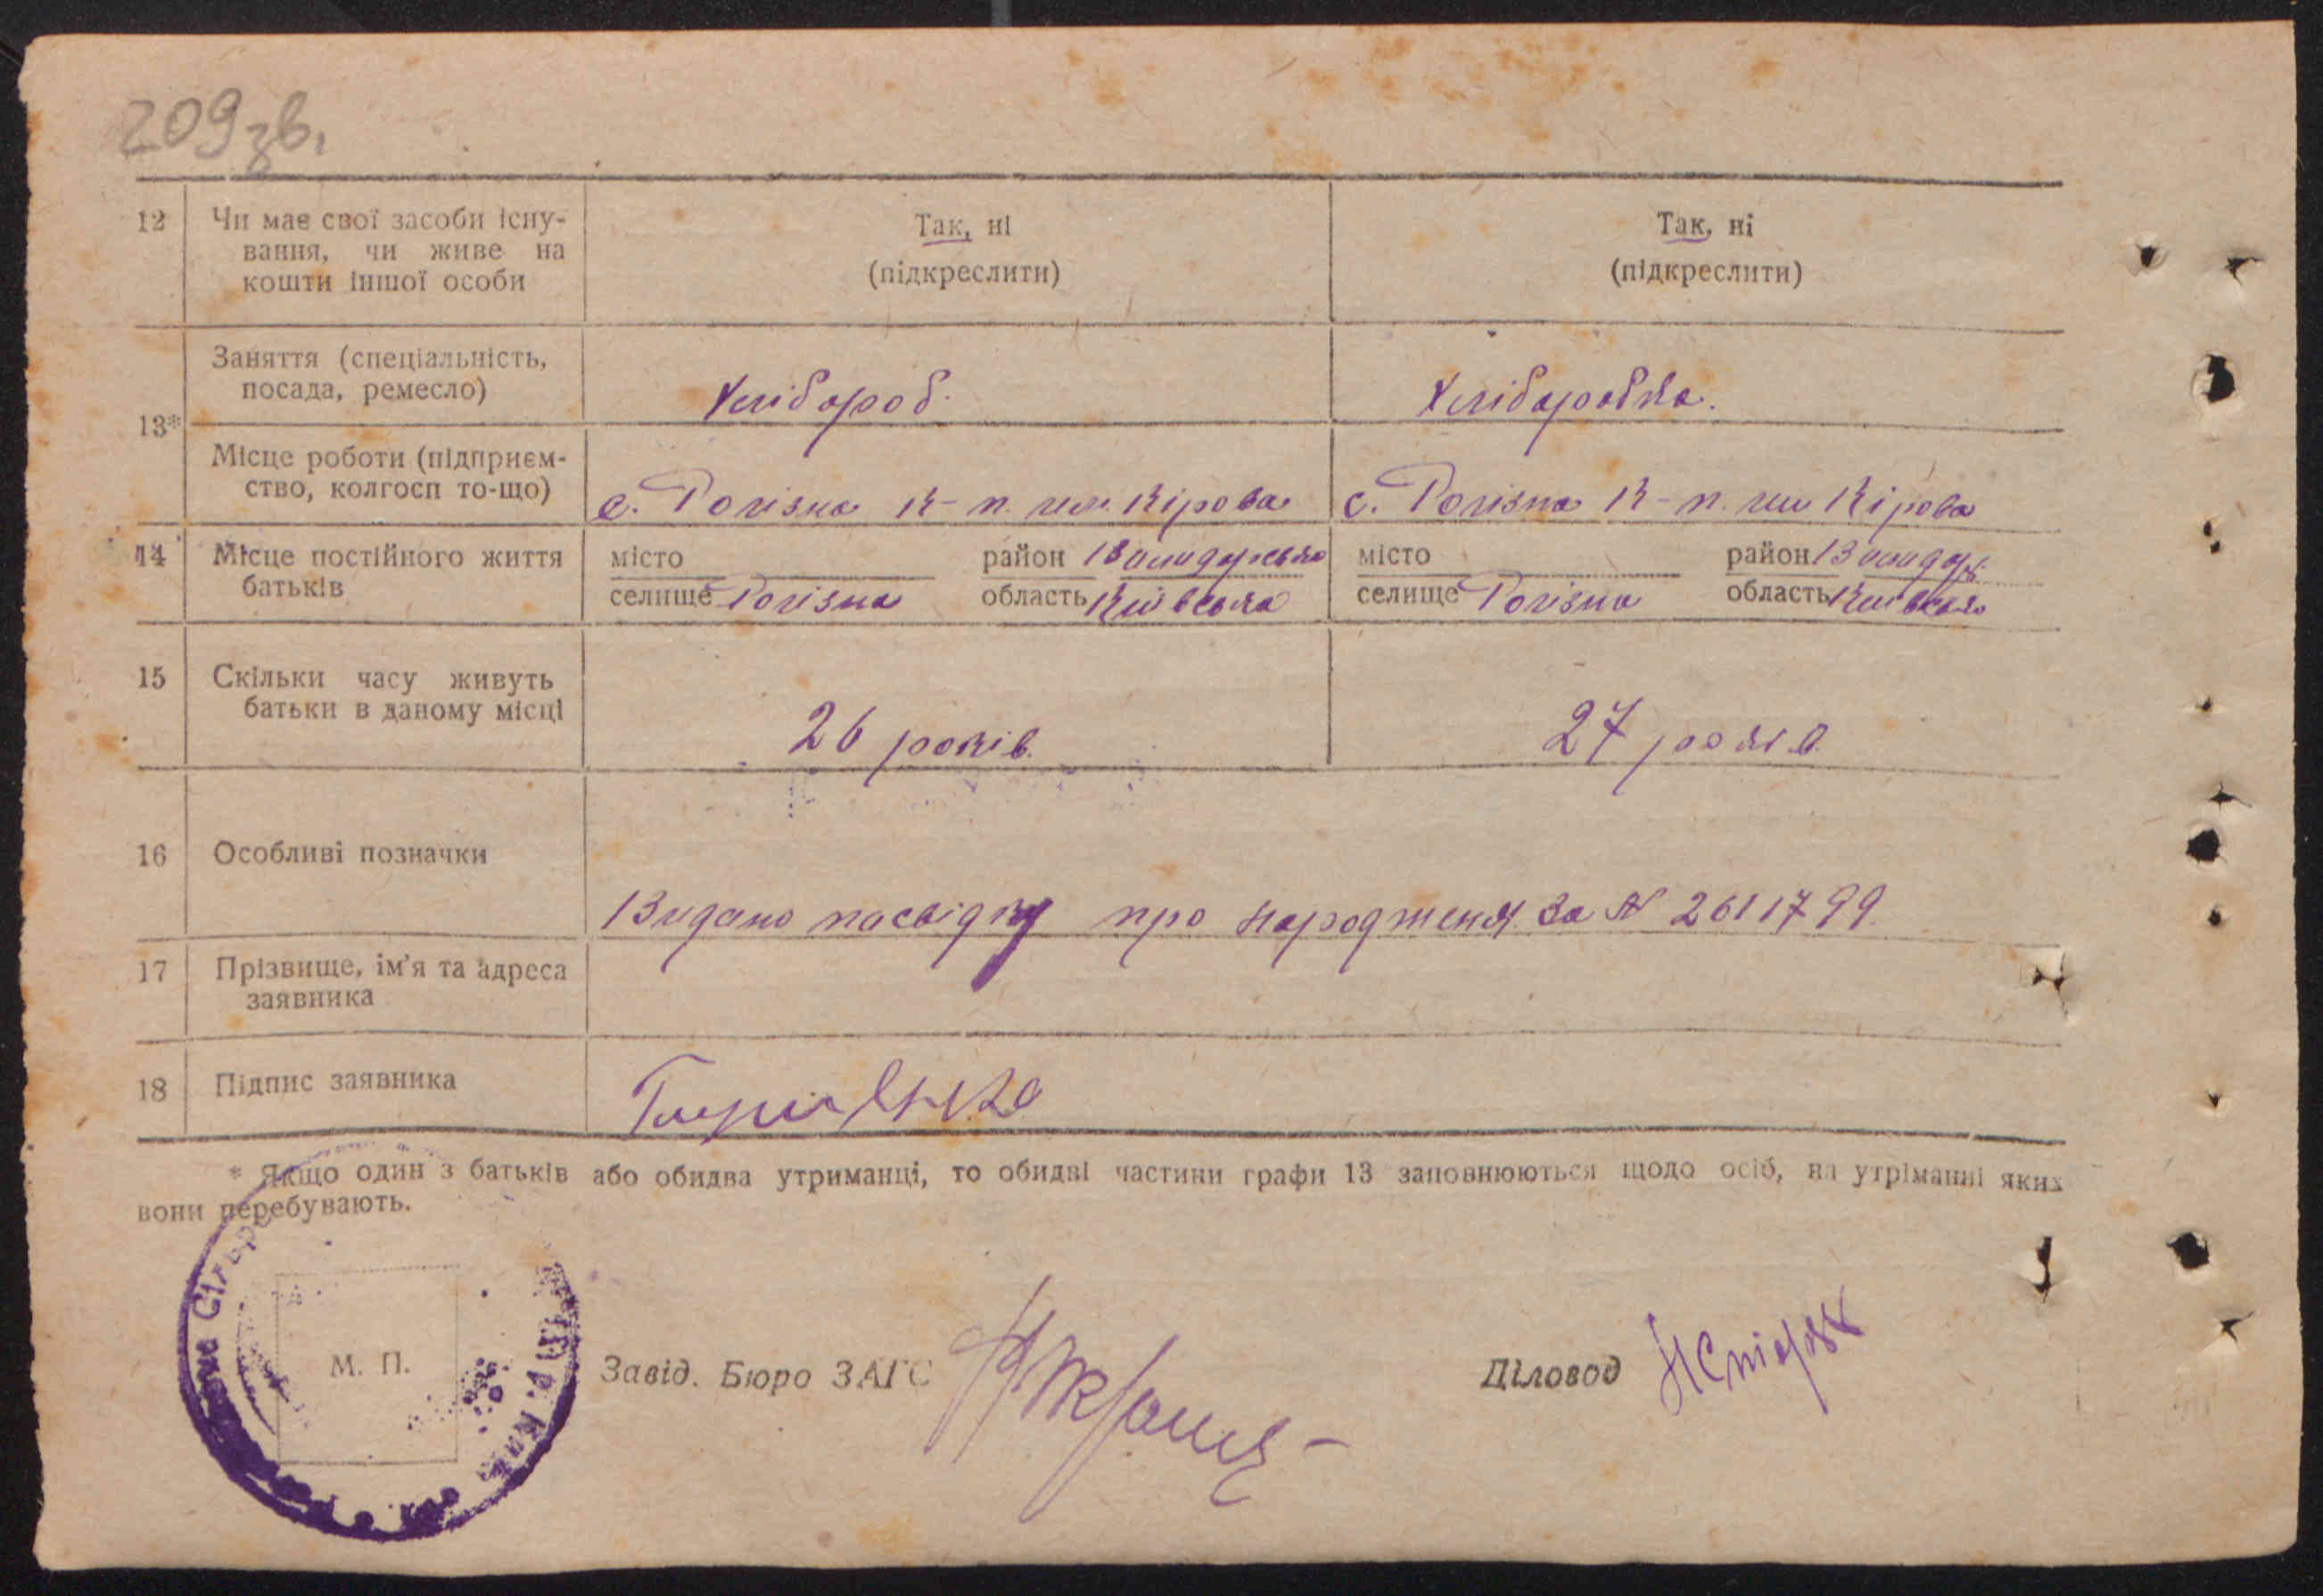 209зв.
12 Чи має свої засоби існу-
вання, чи живе на
кошти іншої особи
Так, ні
(підкреслити)
Так, ні
(підкреслити)
13*
Заняття (спеціальність,
посада, ремесло)
Хлібороб.
Хліборобка.
Місце роботи (підприєм-
ство, колгосп то-що)
с. Рогізна К-п. им. Кірова
с. Рогізна К-п. им Кірова
14 Місце постійного життя
батьків
місто район Володарська
селище Рогізна область Київська
місто район Володар.
селище Рогізна область Київська
15 Скільки часу живуть
батьки в даному місці
26 років.
27 років.
16 Особливі позначки
Видано посвідку про народженя. За № 2611799.
17 Прізвище, ім'я та адреса
заявника
18 Підпис заявника
* Якщо один з батьків або обидва утриманці, то обидві частини графи 13 заповнюються щодо осіб, на утріманні яких
вони перебувають.
М. П.
Завід. Бюро ЗАГС
Діловод